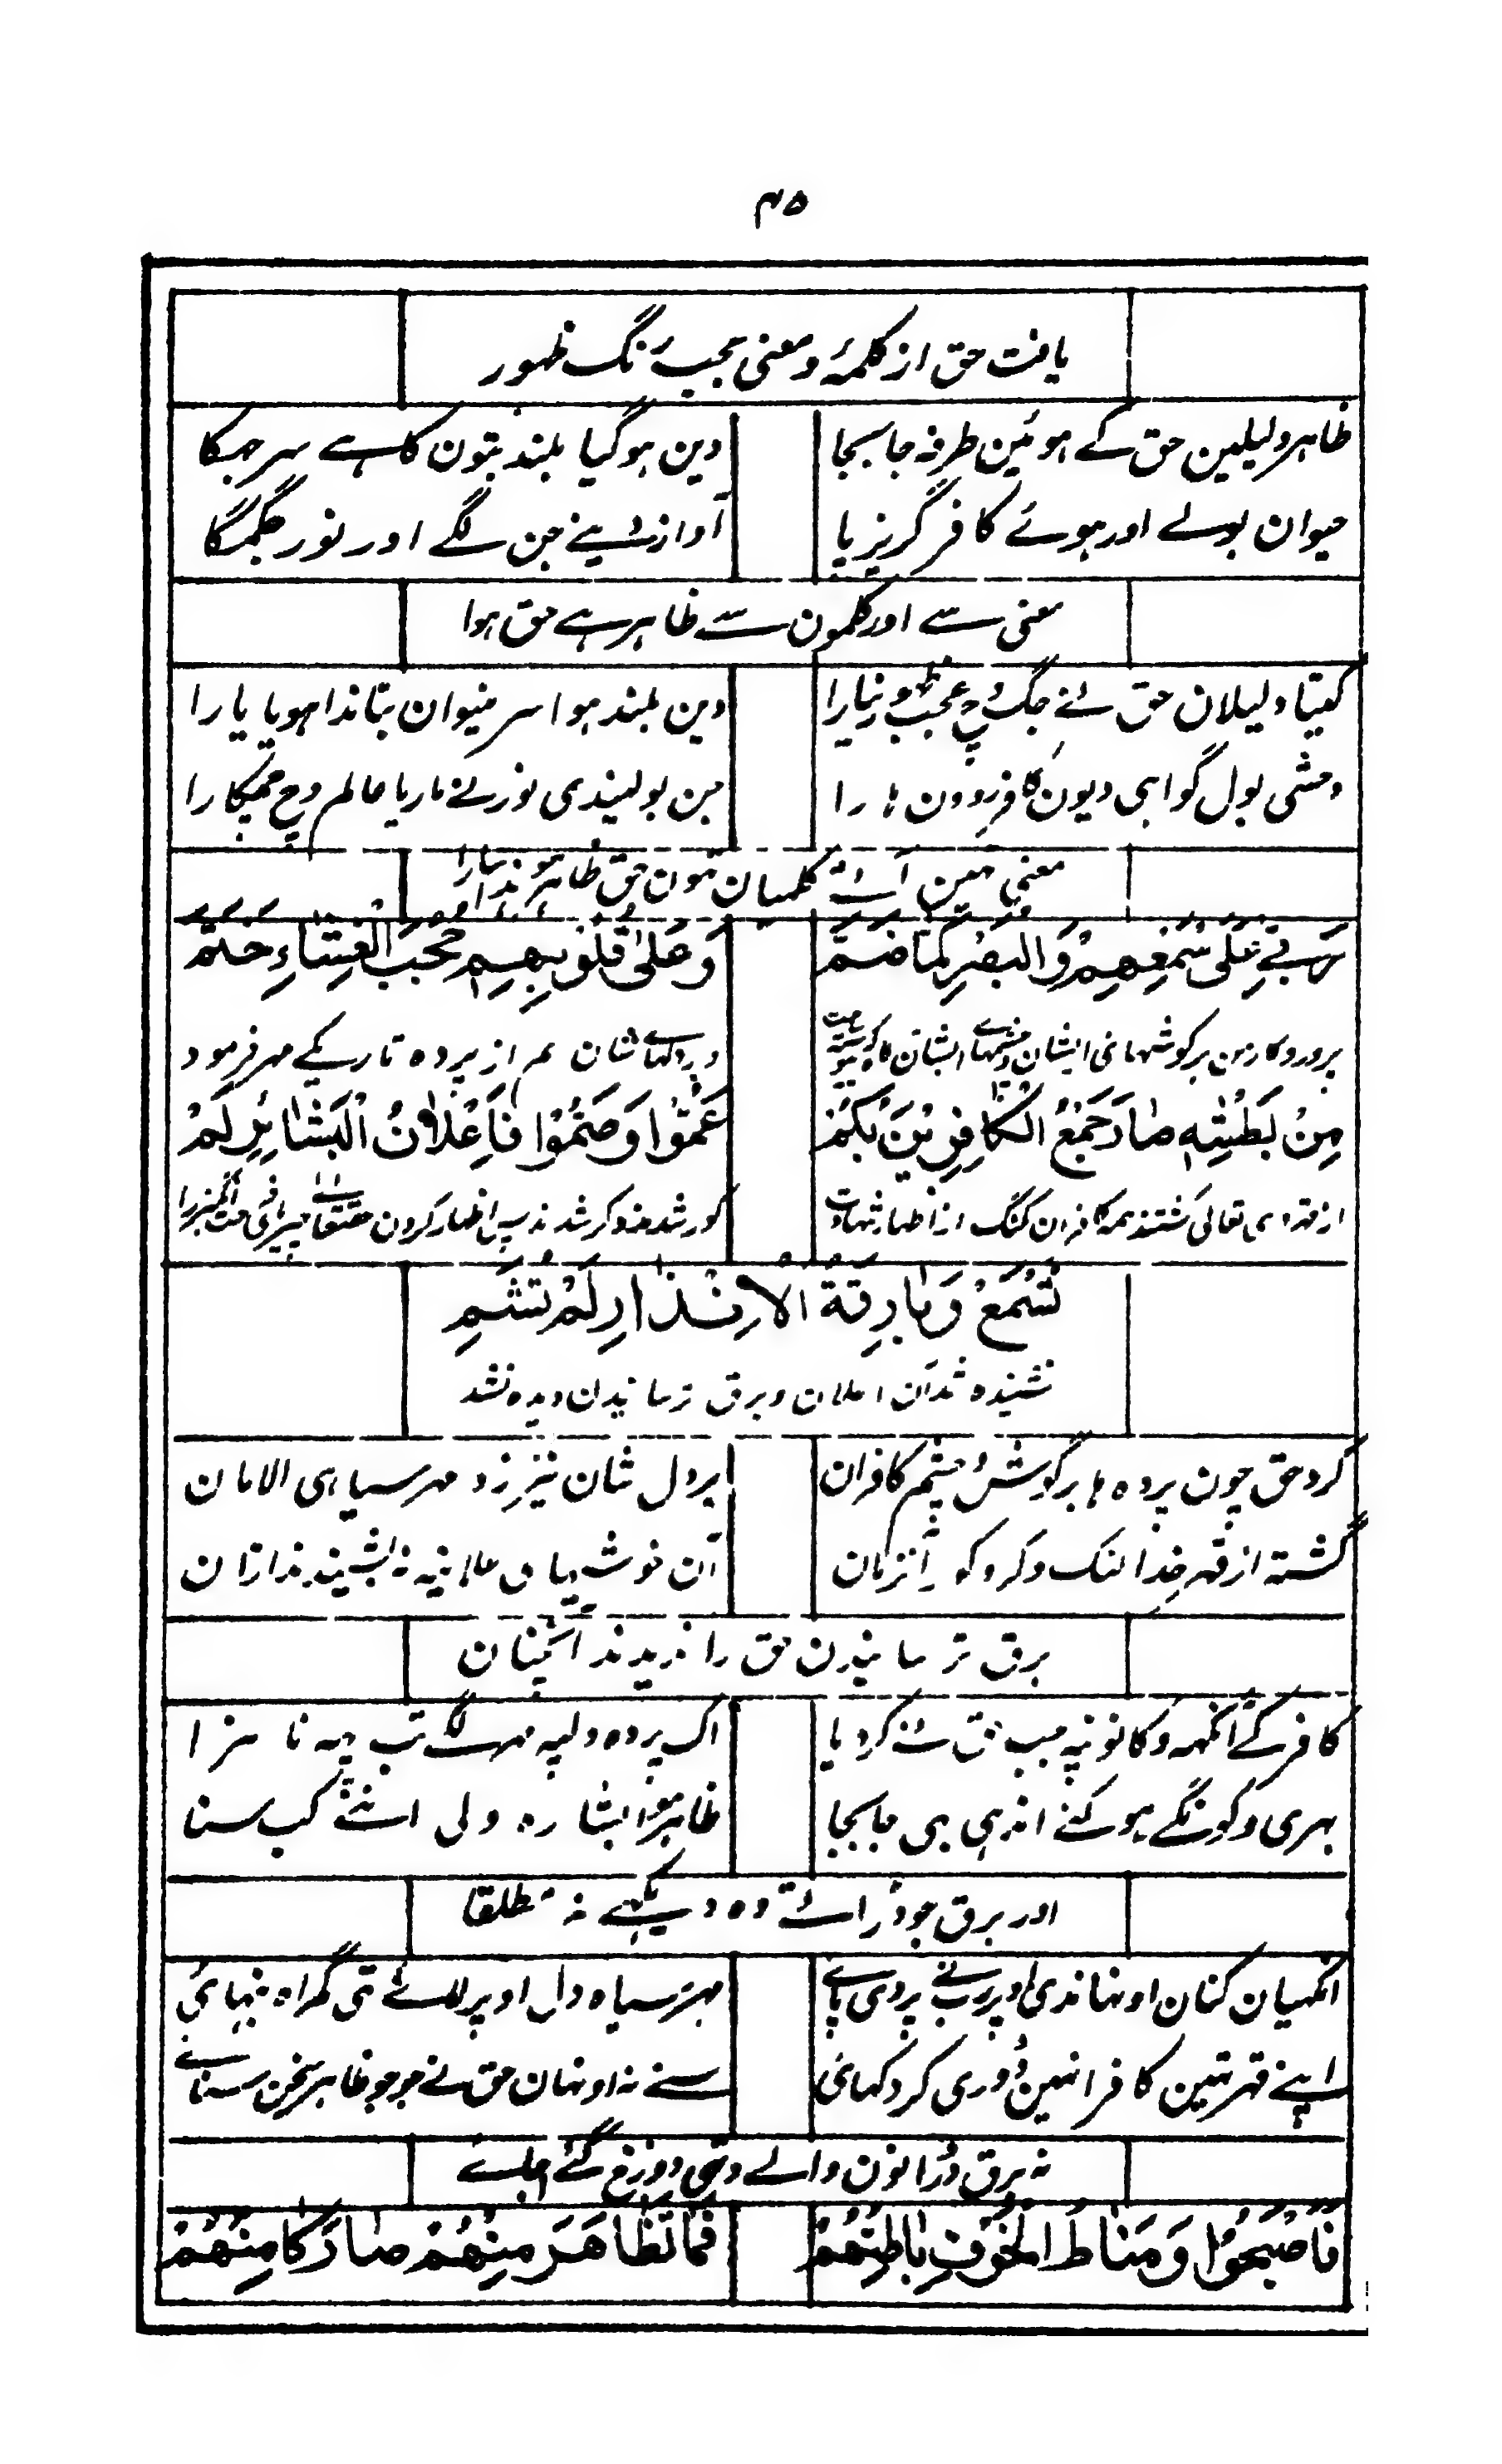 ۴۵
یافت حق از کلمۂ و معنی عجب رنگ ظهور
ظاہر دلیلین حق کے ہوئین طرفہ جا بجا
دین ہو گیا بلند بتون کا ہے سر جھکا
حیوان بولے اور ہوئے کافر گریز پا
آواز سنیے جن لگے اور نور جگمگا
معنی سے اور کلمون سے ظاہر ہے حق ہوا
کیتا دلیلان حق نے جگ وچ عجب نیارا
دین بلند ہوا سر نیوان بتاندا ہویا یارا
وحشی بول گواہی دیون کافر دون ہارا
جن بولیندی نور نے ماریا عالم وچ چمکارا
معنی مین اتے کلمیان تون حق ظاہر ہوندا سارا
رَبِّي عَلَى سَمْعِهِمْ وَالْبَصَرِ كَمَا ضَمَّ
وَعَلَى قُلُوبِهِمْ حُجُبَ الْغِشَاءِ خَتَمْ
پروردگار من بر گوشهای ایشان و چشمهای ایشان
و بر دلهای شان هم از پرده تاریکی مهر فرمود
مِنْ بَطْشِهٖ صَارَ جَمْعُ الْكَافِرِيْنَ بُكُمْ
عَمُوْا وَصَمُّوْا فَاِعْلَانُ الْبَشَائِرِ لَمْ
از قهر وی تعالی گشتند همه کافران گنگ از اظهار شهادت
کور شدند و کر شدند پس اظهار کردن
تُسْمَعْ وَبَارِقَةُ الْاِنْذَارِ لَمْ تُشَمِ
نشنیده شد آن اعلان و برق ترسانیدن دیده نشد
کرد حق چون پرده ها بر گوش و چشم کافران
بر دل شان نیز زد مهر سیاهی الامان
گشته از قهر خدا لنک و کر و کور آنزمان
آن خوشیهای علانیه نه بشنیدند ازان
برق ترسانیدن حق را ندیدند آنچنان
کافر کے انکھہ و کانو نپہ جب حق نے کر دیا
اک پردہ دلپہ مہر لگے تب یہ نا سزا
بہری و گونگے ہو گئے اندہی بہی جا بجا
ظاہر ہوا بشارہ ولی اسنے کب سنا
اور برق جو ڈرانے وہ دیکھے نہ مطلقا
انکھیان کنان اونہاندی اوپر رب نے پردی پائے
مہر سیاہ دل اوپر لائے تی گمراہ بنہائی
اپنے قہر تہین کافر انہین دوری کر دکہائی
سنے نہ اونہان حق نے جو جو ظاہر سخن سنائے
نہ برق ڈرانون والے وتہی دوزخ گئے جلسے
فَاَصْبَحُوْا وَمَنَاطُ الْخَوْفِ بَاطِنُهُمْ
فَمَا تَظَاهَرَ مِنْهُمْ صَارَ كَامِنَهُمْ